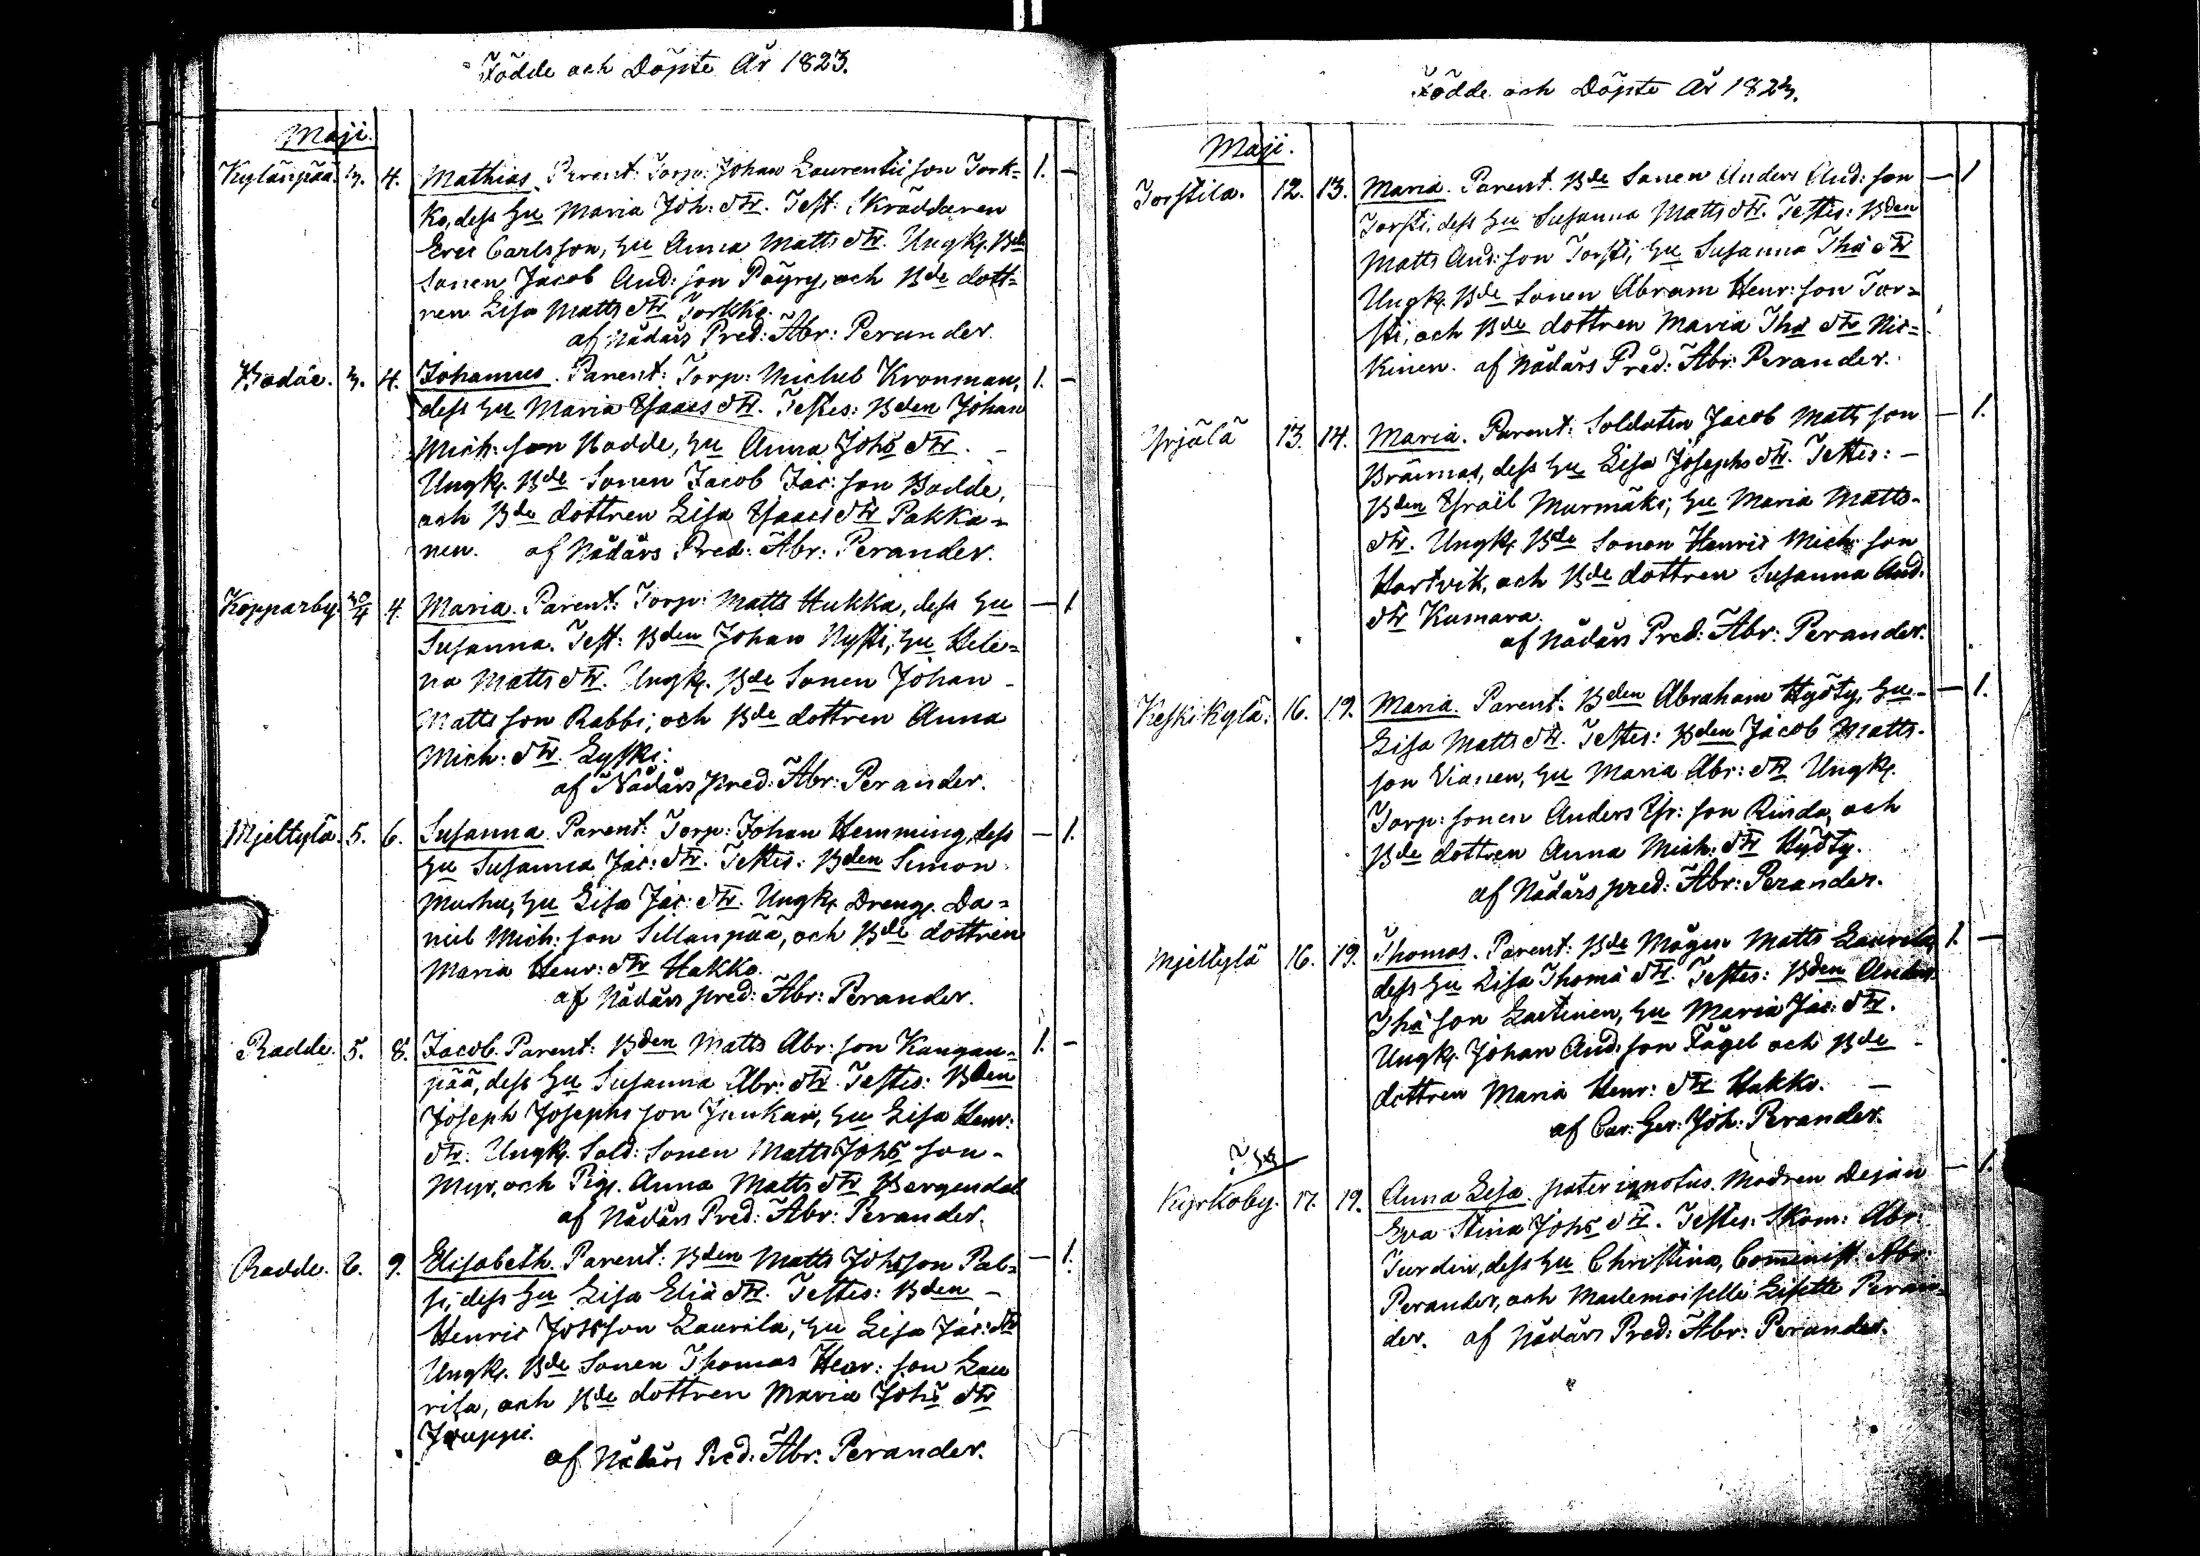 Födde och Döpte År 1823.
Maji.
Kylänpää. 3. 4. Mathias. Parent: Torp: Johan Laurentii son Tork= 1. –
ko, dess Hu Maria Joh: dtr. Test: Skräddaren
Eric Carlsson, Hu Anna Matts dtr. Ungk. Bde
Sonen Jacob And: son Pöyry, och Bde dott=
ren Lisa Matts dtr Torkko.
af Nådårs Pred: Abr: Perander.
3. 4. Johannes. Parent: Torp: Michel Kronman, 1. –
dess Hu Maria Isaacs dtr. Testes: Bden Johan
Mich: son Bodde, Hu Anna Johs dtr. –
Ungk. Bde Sonen Jacob Jac: son Bodde,
och Bde dottren Lisa Isaacs dtr Pakka=
nen. af Nådårs Pred: Abr: Perander.
Kopparby. 30/4 4. Maria. Parent: Torp: Matts Hukka, dess Hu – 1
Susanna. Test: Bden Johan Nysti, Hu Hele=
na Matts dtr. Ungk. Bde Sonen Johan –
Matts son Rabbi, och Bde dottren Anna
Mich: dtr. Lyski.
af Nådårs pred: Abr: Perander.
Mjeltylä. 5. 6. Susanna. Parent: Torp: Johan Hemming, dess – 1.
Hu Susanna Jac: dtr. Testes: Bden Simon
Murhu, Hu Lisa Jac: dtr. Ungk. Dreng. Da=
niel Mich: son Sillanpää, och Bde dottren
Maria Henr: dtr Hakko.
af Nådårs pred: Abr: Perander.
Radde. 5. 8. Jacob. Parent: Bden Matts Abr: son Kangan= 1. –
pää, dess Hu Susanna Abr: dtr. Testes: Bden
Joseph Josephs son Junkari, Hu Lisa Henr:
dtr. Ungk. Sold: Sonen Matts Johs son –
Myr, och Pig. Anna Matts dtr Bergendal
af Nådårs Pred: Abr: Perander.
Radde. 6. 9. Elisabeth. Parent: Bden Matts Johs son Pas= – 1.
si, dess Hu Lisa Eliä dtr. Testes: Bden –
Henric Johs son Laurila, Hu Lisa Jac: dtr
Ungk. Bde Sonen Thomas Henr: son Lau
rila, och Bde dottren Maria Johs dtr
Jouppi.
af Nådårs Pred: Abr: Perander.
Födde och Döpte År 1823.
Maji.
Torstila. 12. 13. Maria. Parent. Bde Sonen Anders And: son – 1
Torsti, dess Hu Susanna Matts dtr. Testes: Bden
Matts And: son Torsti, Hu Susanna Thä dtr
Ungk. Bde Sonen Abram Henr: son Tor=
sti, och Bde dottren Maria Thä dtr Nic=
kinen. af Nådårs Pred: Abr: Perander.
Yrjälä 13. 14. Maria. Parent: Soldaten Jacob Matts son – 1.
Brännas, dess Hu Lisa Josephs dtr. Testes: –
Bden Israël Murmäki, Hu Maria Matts–
dtr. Ungk. Bde Sonen Henric Mich: son
Hartvik, och Bde dottren Susanna And:
dtr Kumara.
af Nådårs Pred: Abr: Perander.
Keskikylä. 16. 19. Maria. Parent: Bden Abraham Hyöty, Hu – – 1.
Lisa Matts dtr. Testes: Bden Jacob Matts–
son Vianen, Hu Maria Abr: dtr Ungk.
Torp: sonen Anders Isr: son Rinda, och
Bde dottren Anna Mich: dtr Hyöty.
af Nådårs pred: Abr: Perander.
Mjeltylä 16. 19. Thomas. Parent: Bde Mågen Matts Laurila, 1. –
dess Hu Lisa Thomä dtr. Testes: Bden Anders
Thä son Lartinen, Hu Maria Jac: dtr.
Ungk. Johan And: son Fågel och Bde –
dottren Maria Henr: dtr Hakko. –
af Cur: Ger: Joh: Perander.
Kyrkoby. 17. 19. Anna Lisa. pater ignotus. Modren Dejan – 1.
Eva Stina Johs dtr. Testes: Skom: Abr:
Turdin, dess Hu Christina, Comminist. Abr:
Perander, och Mademoiselle Lisette Peran=
der. af Nådårs Pred: Abr: Perander.